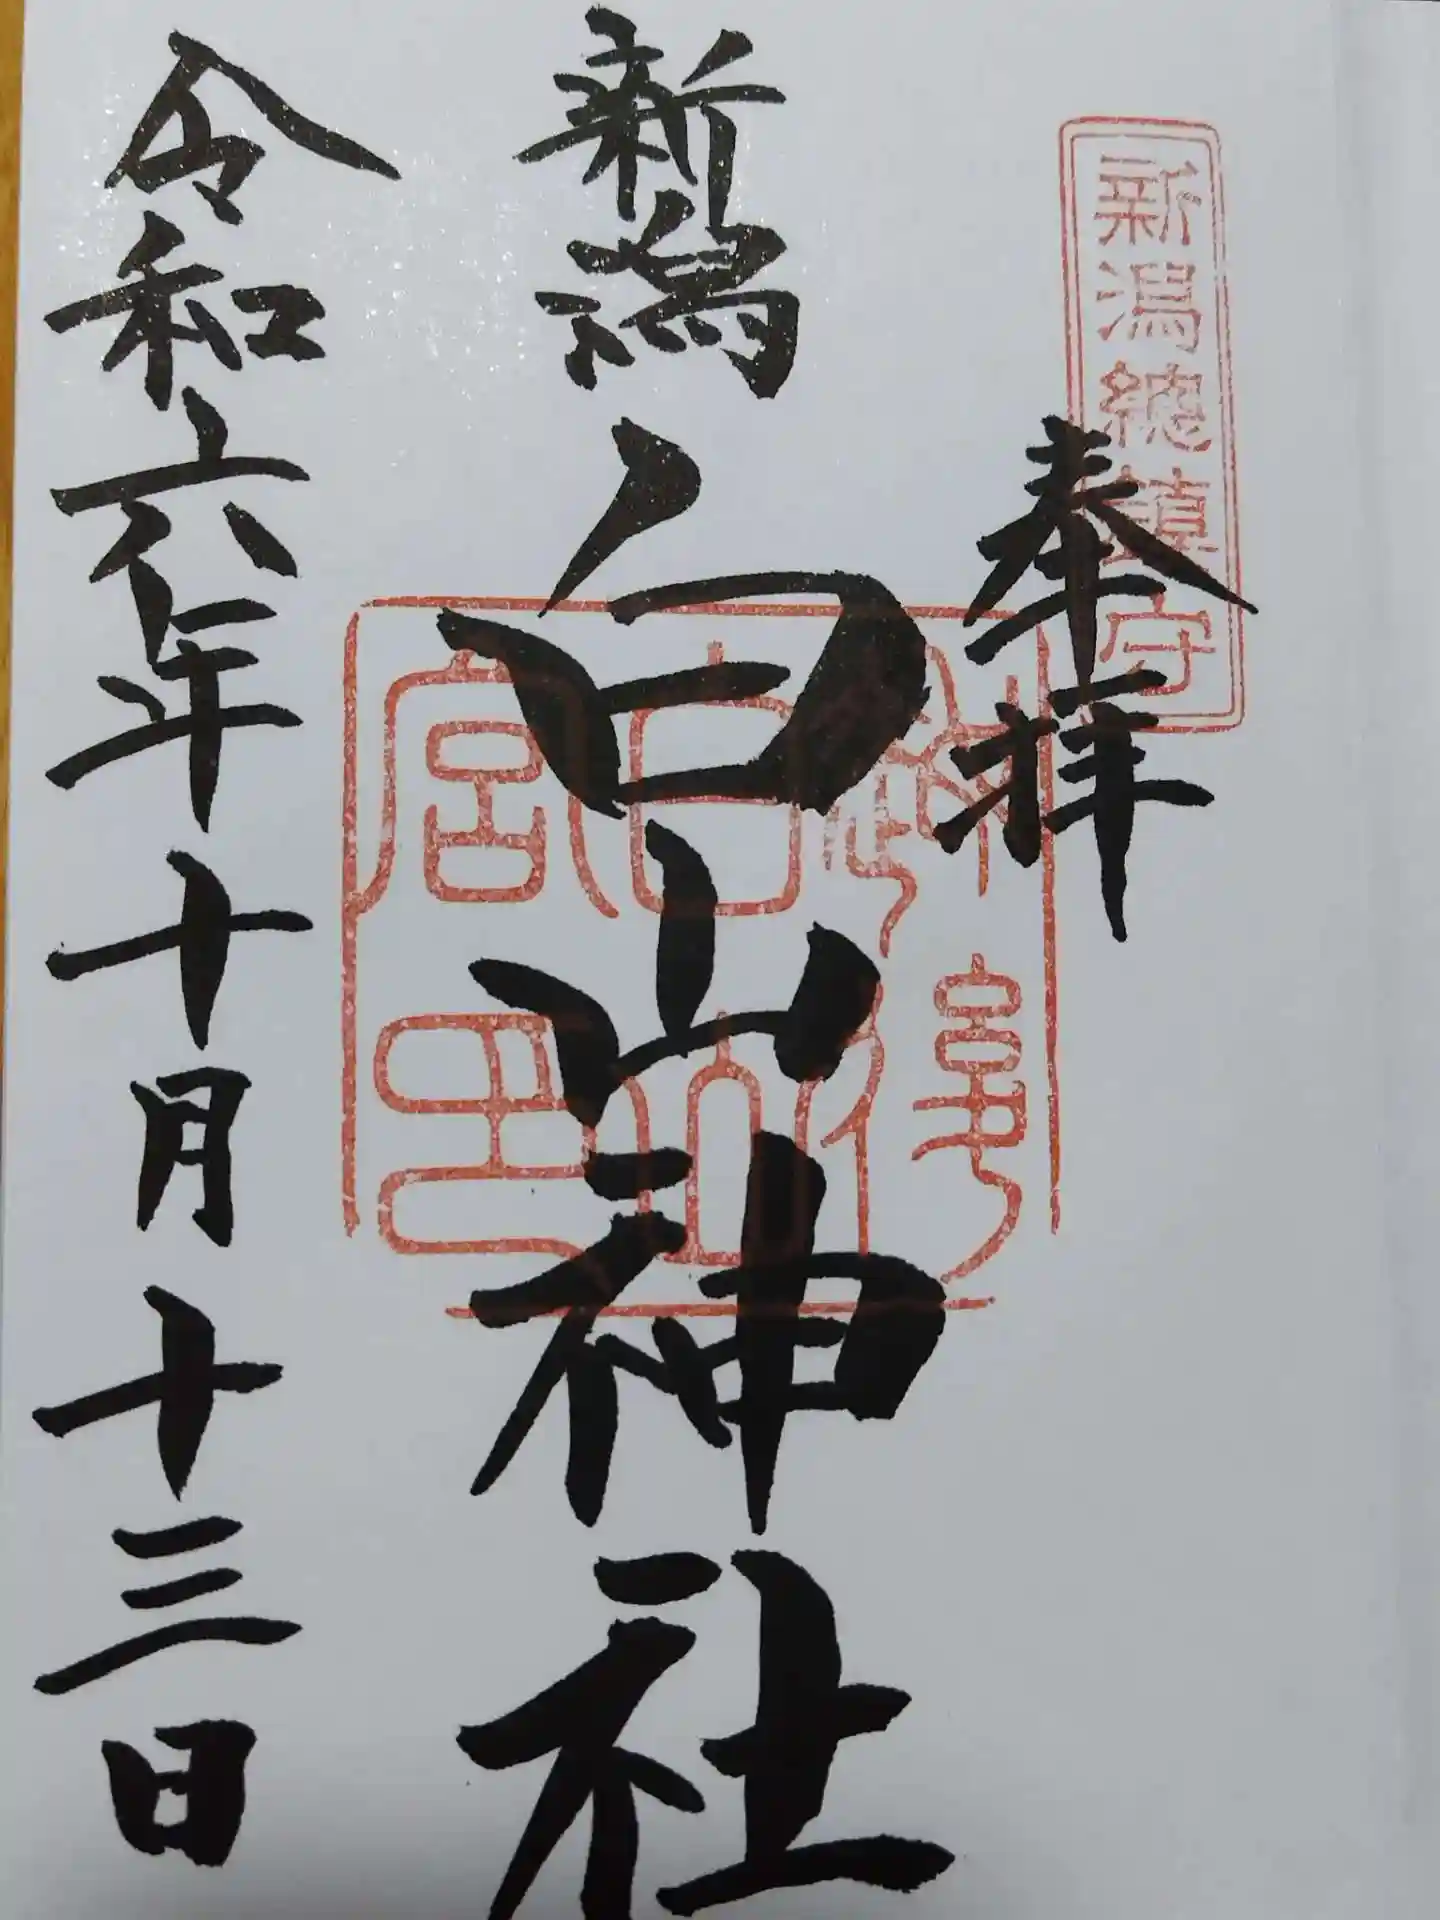 新潟總鎮守
奉拝
新潟白山神社
白山
宮印
令和六年十月十三日